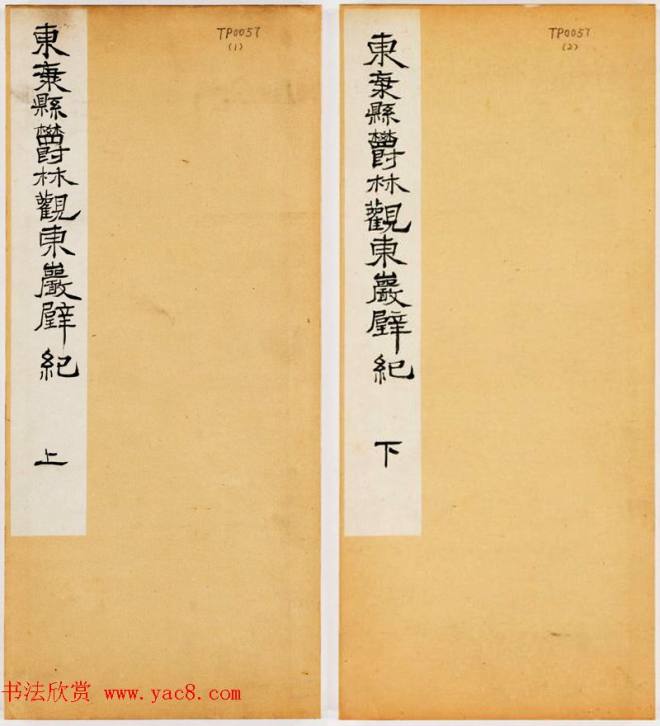 TP0057
(1)
東海縣鬱林觀東巖壁紀
上
TP0057
(2)
東海縣鬱林觀東巖壁紀
下
书法欣赏 www.yac8.com